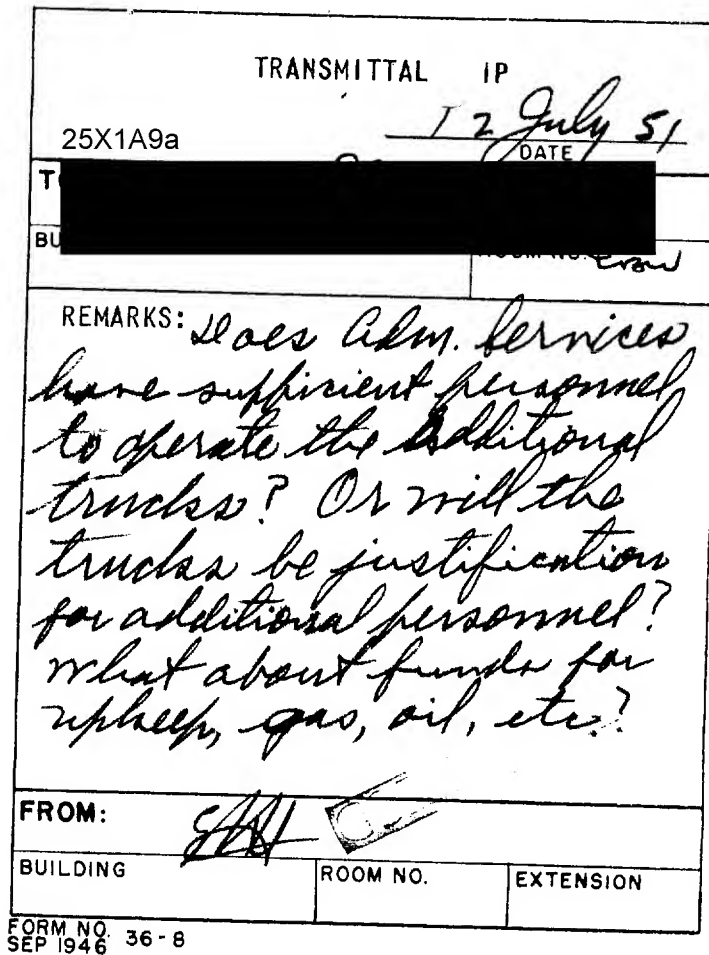 TRANSMITTAL IP
12 July 51
25X1A9a
DATE
T
BU
ROOM NO.
REMARKS: Does Adm. Services
have sufficient personnel
to operate the additional
trucks? Or will the
trucks be justification
for additional personnel?
What about funds for
upkeep, gas, oil, etc?
FROM:
BUILDING
ROOM NO.
EXTENSION
FORM NO. 36-8
SEP 1946